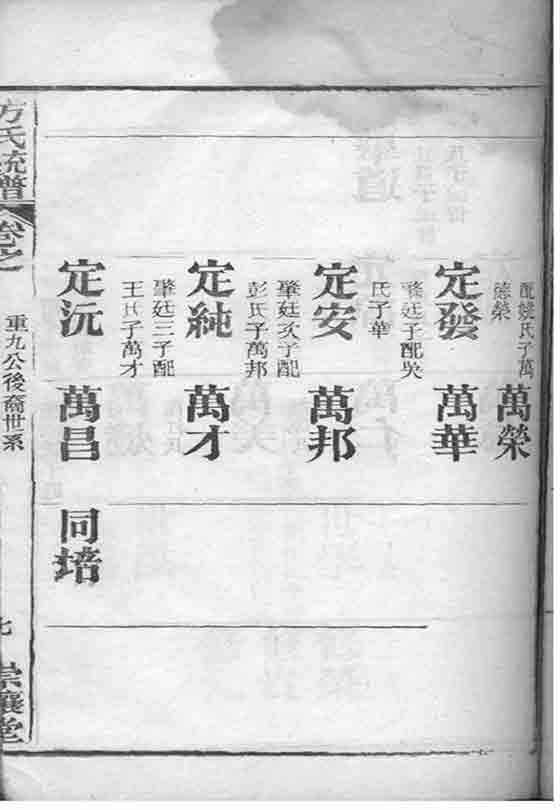 配饒氏子萬
德榮
萬榮
定發
肇廷子配吳
氏子華
萬華
定安
肇廷次子配
彭氏子萬邦
萬邦
定純
肇廷三子配
王氏子萬才
萬才
定沅
萬昌
同培
方氏統譜
卷之
重九公後裔世系
七
堂